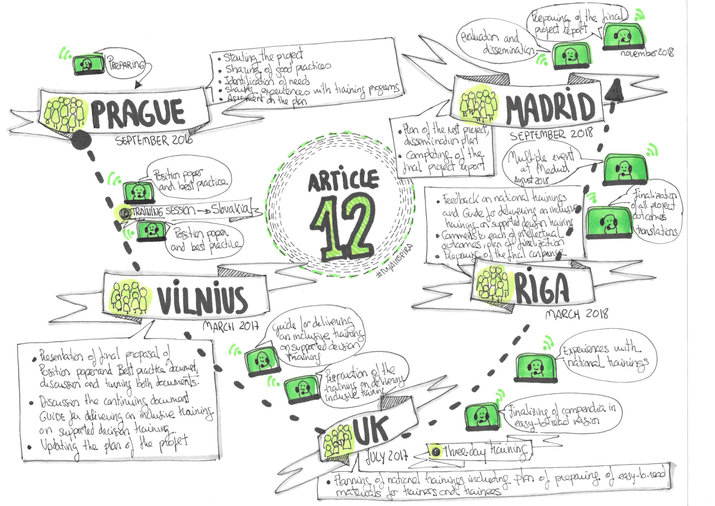 PREPARING
• Starting the project
• Sharing of good practices
• Identification of needs
• Sharing experiences with training programs
• Agreement on the plan
PRAGUE
SEPTEMBER 2016
Position paper
and best practice
TRAINING SESSION → Slovakia
Position paper
and best practice
VILNIUS
MARCH 2017
• Presentation of final proposal of
Position paper and Best practice document,
discussion and turning both documents.
• Discussion the continuing document
GUIDE for delivering an inclusive training
on supported decision training
• Updating the plan of the project
ARTICLE
12
Guide for delivering
an inclusive training
on supported decision
training
Preparation of the
training on delivering
inclusive training
UK
JULY 2017
Three-day training
• Planning of national trainings including plan of preparing of easy-to-read
materials for trainers and trainees
Finalizing of compendia in
easy-to-read version
Experiences with
national trainings
RIGA
MARCH 2018
• Feedback on national trainings
and Guide for delivering an inclusive
training on supported decision training
• Comments to each of intellectual
outcomes, plan of finalization
• Preparing of the final
Finalization
of all project
outcomes
translations
Multiple event
at Madrid
august 2018
MADRID
SEPTEMBER 2018
• Plan of the project,
dissemination plan
• Completing of the
final project report
Evaluation and
dissemination
Preparing of the final
project report
november 2018